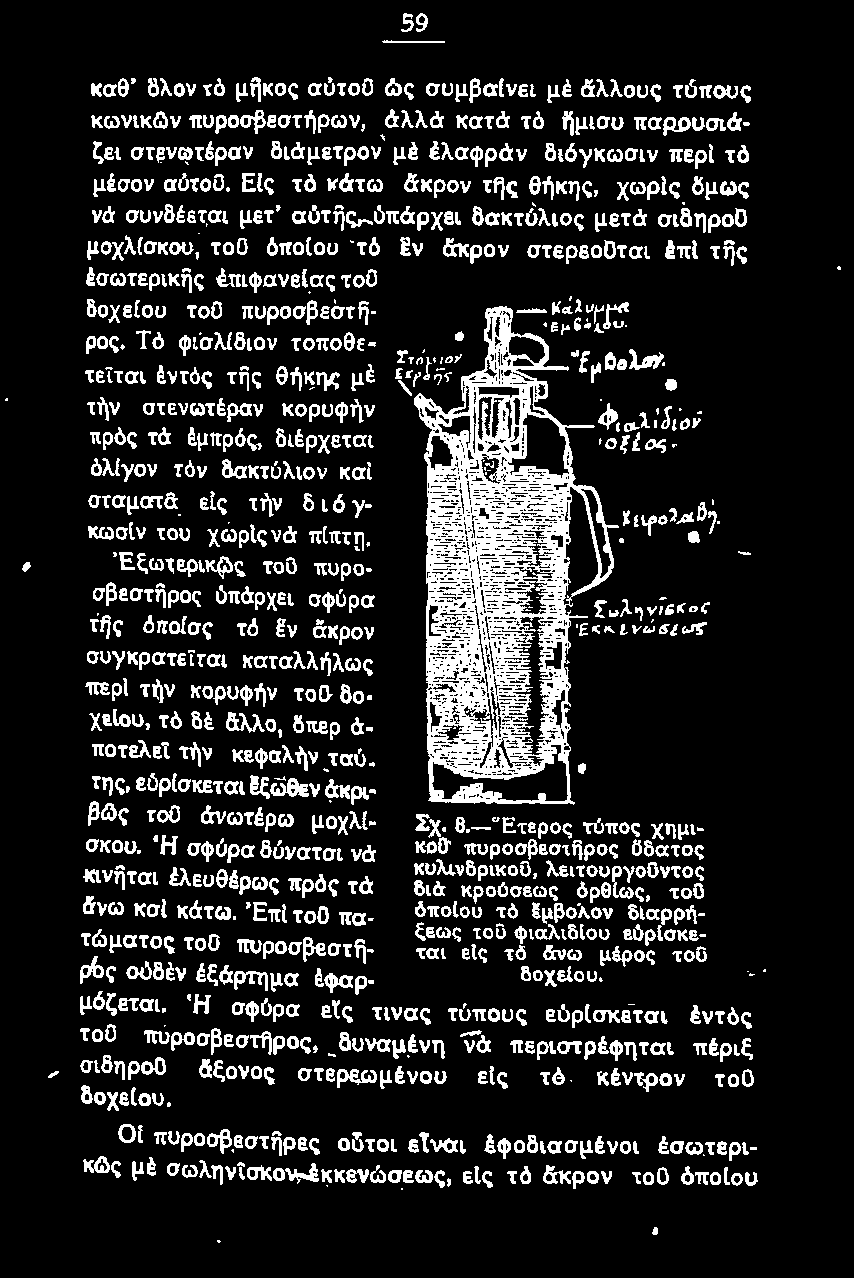 59
καθ’ ὅλον τὸ μῆκος αὐτοῦ ὡς συμβαίνει μὲ ἄλλους τύπους
κωνικῶν πυροσβεστήρων, ἀλλὰ κατὰ τὸ ἥμισυ παρουσιά-
ζει στενωτέραν διάμετρον μὲ ἐλαφρὰν διόγκωσιν περὶ τὸ
μέσον αὐτοῦ. Εἰς τὸ κάτω ἄκρον τῆς θήκης, χωρὶς ὅμως
νὰ συνδέεται μετ’ αὐτῆς, ὑπάρχει δακτύλιος μετὰ σιδηροῦ
μοχλίσκου, τοῦ ὁποίου τὸ ἓν ἄκρον στερεοῦται ἐπὶ τῆς
ἐσωτερικῆς ἐπιφανείας τοῦ
δοχείου τοῦ πυροσβεστῆ-
ρος. Τὸ φιαλίδιον τοποθε-
τεῖται ἐντὸς τῆς θήκης μὲ
τὴν στενωτέραν κορυφὴν
πρὸς τὰ ἐμπρός, διέρχεται
ὀλίγον τὸν δακτύλιον καὶ
σταματᾶ εἰς τὴν διόγ-
κωσίν του χωρὶς νὰ πίπτῃ.
Ἐξωτερικῶς τοῦ πυρο-
σβεστῆρος ὑπάρχει σφύρα
τῆς ὁποίας τὸ ἓν ἄκρον
συγκρατεῖται καταλλήλως
περὶ τὴν κορυφὴν τοῦ δο-
χείου, τὸ δὲ ἄλλο, ὅπερ ἀ-
ποτελεῖ τὴν κεφαλὴν ταύ-
της, εὑρίσκεται ἔξωθεν ἀκρι-
βῶς τοῦ ἀνωτέρω μοχλί-
σκου. Ἡ σφύρα δύναται νὰ
κινῆται ἐλευθέρως πρὸς τὰ
ἄνω καὶ κάτω. Ἐπὶ τοῦ πα-
τώματος τοῦ πυροσβεστῆ-
ρος οὐδὲν ἐξάρτημα ἐφαρ-
μόζεται. Ἡ σφύρα εἴς τινας τύπους εὑρίσκεται ἐντὸς
τοῦ πυροσβεστῆρος, δυναμένη νὰ περιστρέφηται πέριξ
σιδηροῦ ἄξονος στερεωμένου εἰς τὸ κέντρον τοῦ
δοχείου.
Κάλυμμα
Ἐμβόλου.
Στόμιον
Ἐκροῆς
Ἔμβολον.
Φιαλίδιον
ὀξέος.
Χειρολαβή.
Σωληνίσκος
Ἐκκενώσεως
Σχ. 8.—Ἕτερος τύπος χημι-
κοῦ πυροσβεστῆρος ὕδατος
κυλινδρικοῦ, λειτουργοῦντος
διὰ κρούσεως ὀρθίως, τοῦ
ὁποίου τὸ ἔμβολον διαρρή-
ξεως τοῦ φιαλιδίου εὑρίσκε-
ται εἰς τὸ ἄνω μέρος τοῦ
δοχείου.
Οἱ πυροσβεστῆρες οὗτοι εἶναι ἐφοδιασμένοι ἐσωτερι-
κῶς μὲ σωληνίσκον ἐκκενώσεως, εἰς τὸ ἄκρον τοῦ ὁποίου